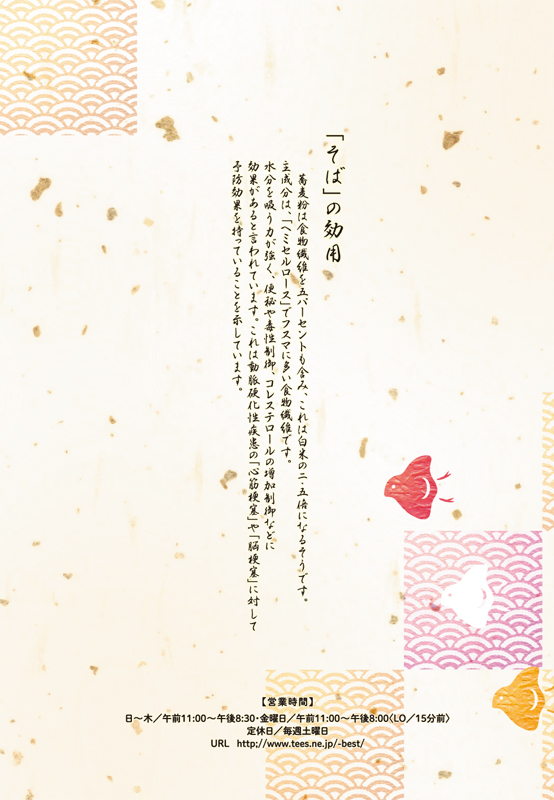 「そば」の効用
蕎麦粉は食物繊維を五パーセントも含み、これは白米の二・五倍になるそうです。
主成分は、「ヘミセルロース」でフスマに多い食物繊維です。
水分を吸う力が強く、便秘や毒性制御、コレステロールの増加制御などに
効果があると言われています。これは動脈硬化性疾患の「心筋梗塞」や「脳梗塞」に対して
予防効果を持っていることを示しています。
【営業時間】
日〜木／午前11:00〜午後8:30・金曜日／午前11:00〜午後8:00〈LO／15分前〉
定休日／毎週土曜日
URL http://www.tees.ne.jp/-best/